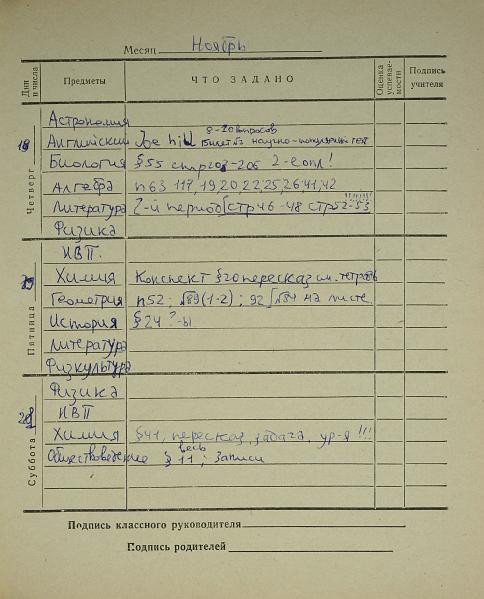 Месяц Ноябрь
Дни и числа Предметы ЧТО ЗАДАНО Оценка успеваемости Подпись учителя
Четверг
Астрономия
8-10 вопросов
Английский Joe Hill билет №3 научно-популярный
Биология § 55 стр 203-206 2-е опл!
Алгебра п 63 117, 19, 20, 22, 25, 26, 41, 42
Литература 2-й период стр 46-48 стр 52-53 !!!!!!!
Физика
Пятница
НВП.
Химия Конспект § 20 пересказ см. тетрадь
Геометрия п 52; √89 (1-2); 92 √84 на листе
История § 24 ?-ы
Литература
Физкультура
Суббота
Физика
НВП
Химия § 41, пересказ, задача, ур-я !!!
весь
Обществоведение § 11; записи
Подпись классного руководителя
Подпись родителей